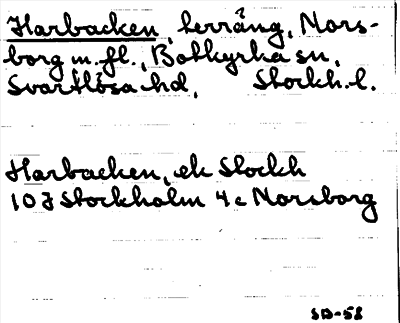 Harbacken, terräng, Nors-
borg m. fl., Botkyrka sn,
Svartlösa hd, Stockh. l.
Harbacken, ek Stockh
10J Stockholm 4c Norsborg
SD-58